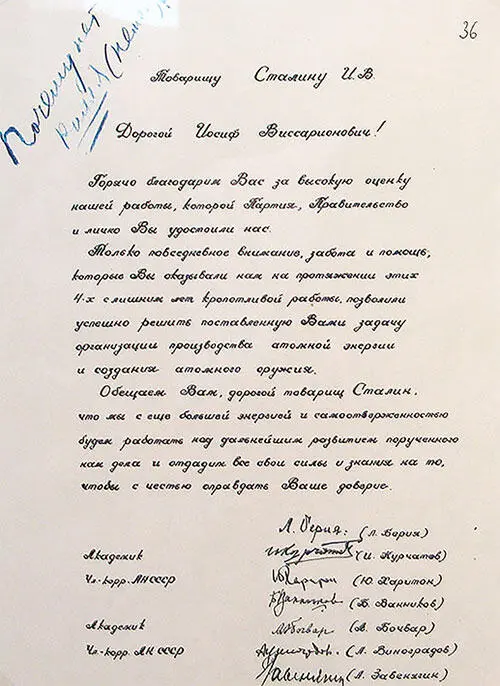 36
Почему нет
Товарищу Сталину И.В.
Дорогой Иосиф Виссарионович!
Горячо благодарим Вас за высокую оценку
нашей работы, которой Партия, Правительство
и лично Вы удостоили нас.
Только повседневное внимание, забота и помощь,
которые Вы оказывали нам на протяжении этих
4-х с лишним лет кропотливой работы, позволили
успешно решить поставленную Вами задачу
организации производства атомной энергии
и создания атомного оружия.
Обещаем Вам, дорогой товарищ Сталин,
что мы с еще большей энергией и самоотверженностью
будем работать над дальнейшим развитием порученного
нам дела и отдадим все свои силы и знания на то,
чтобы с честью оправдать Ваше доверие.
Л. Берия. (Л. Берия)
Академик И Курчатов (И. Курчатов)
Чл.-корр. АН СССР Ю Харитон (Ю. Харитон)
Б Ванников (Б. Ванников)
Академик А Бочвар (А. Бочвар)
Чл.-корр. АН СССР А Виноградов. (А. Виноградов)
Завенягин (А. Завенягин)